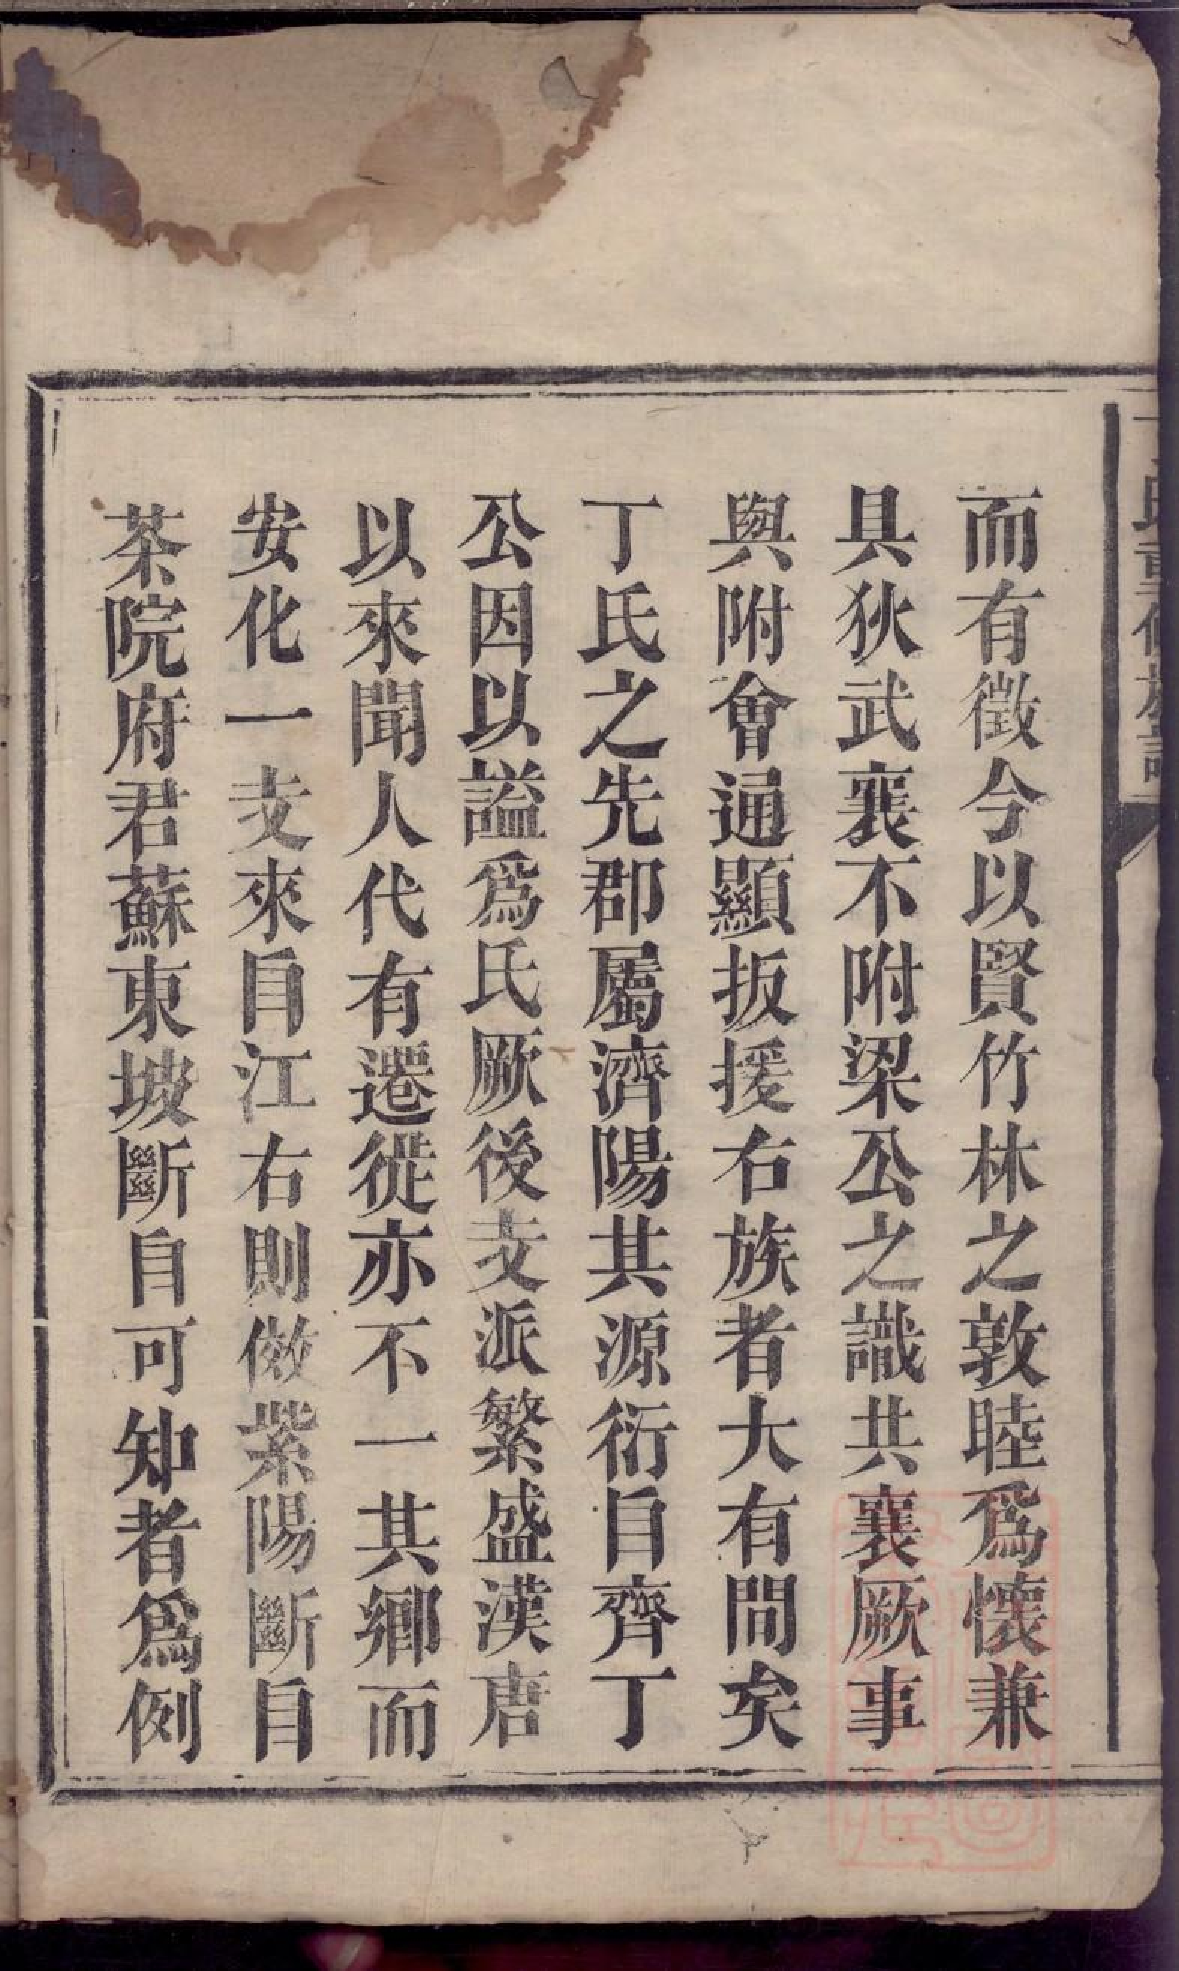 而有徵今以賢竹林之敦睦爲懷兼
具狄武襄不附梁公之識共襄厥事
與附會通顯扳援右族者大有問矣
丁氏之先郡屬濟陽其源衍自齊丁
公因以謚爲氏厥後支派繁盛漢唐
以來聞人代有遷徙亦不一其鄉而
安化一支來自江右則倣紫陽斷自
茶院府君蘇東坡斷自可知者爲例